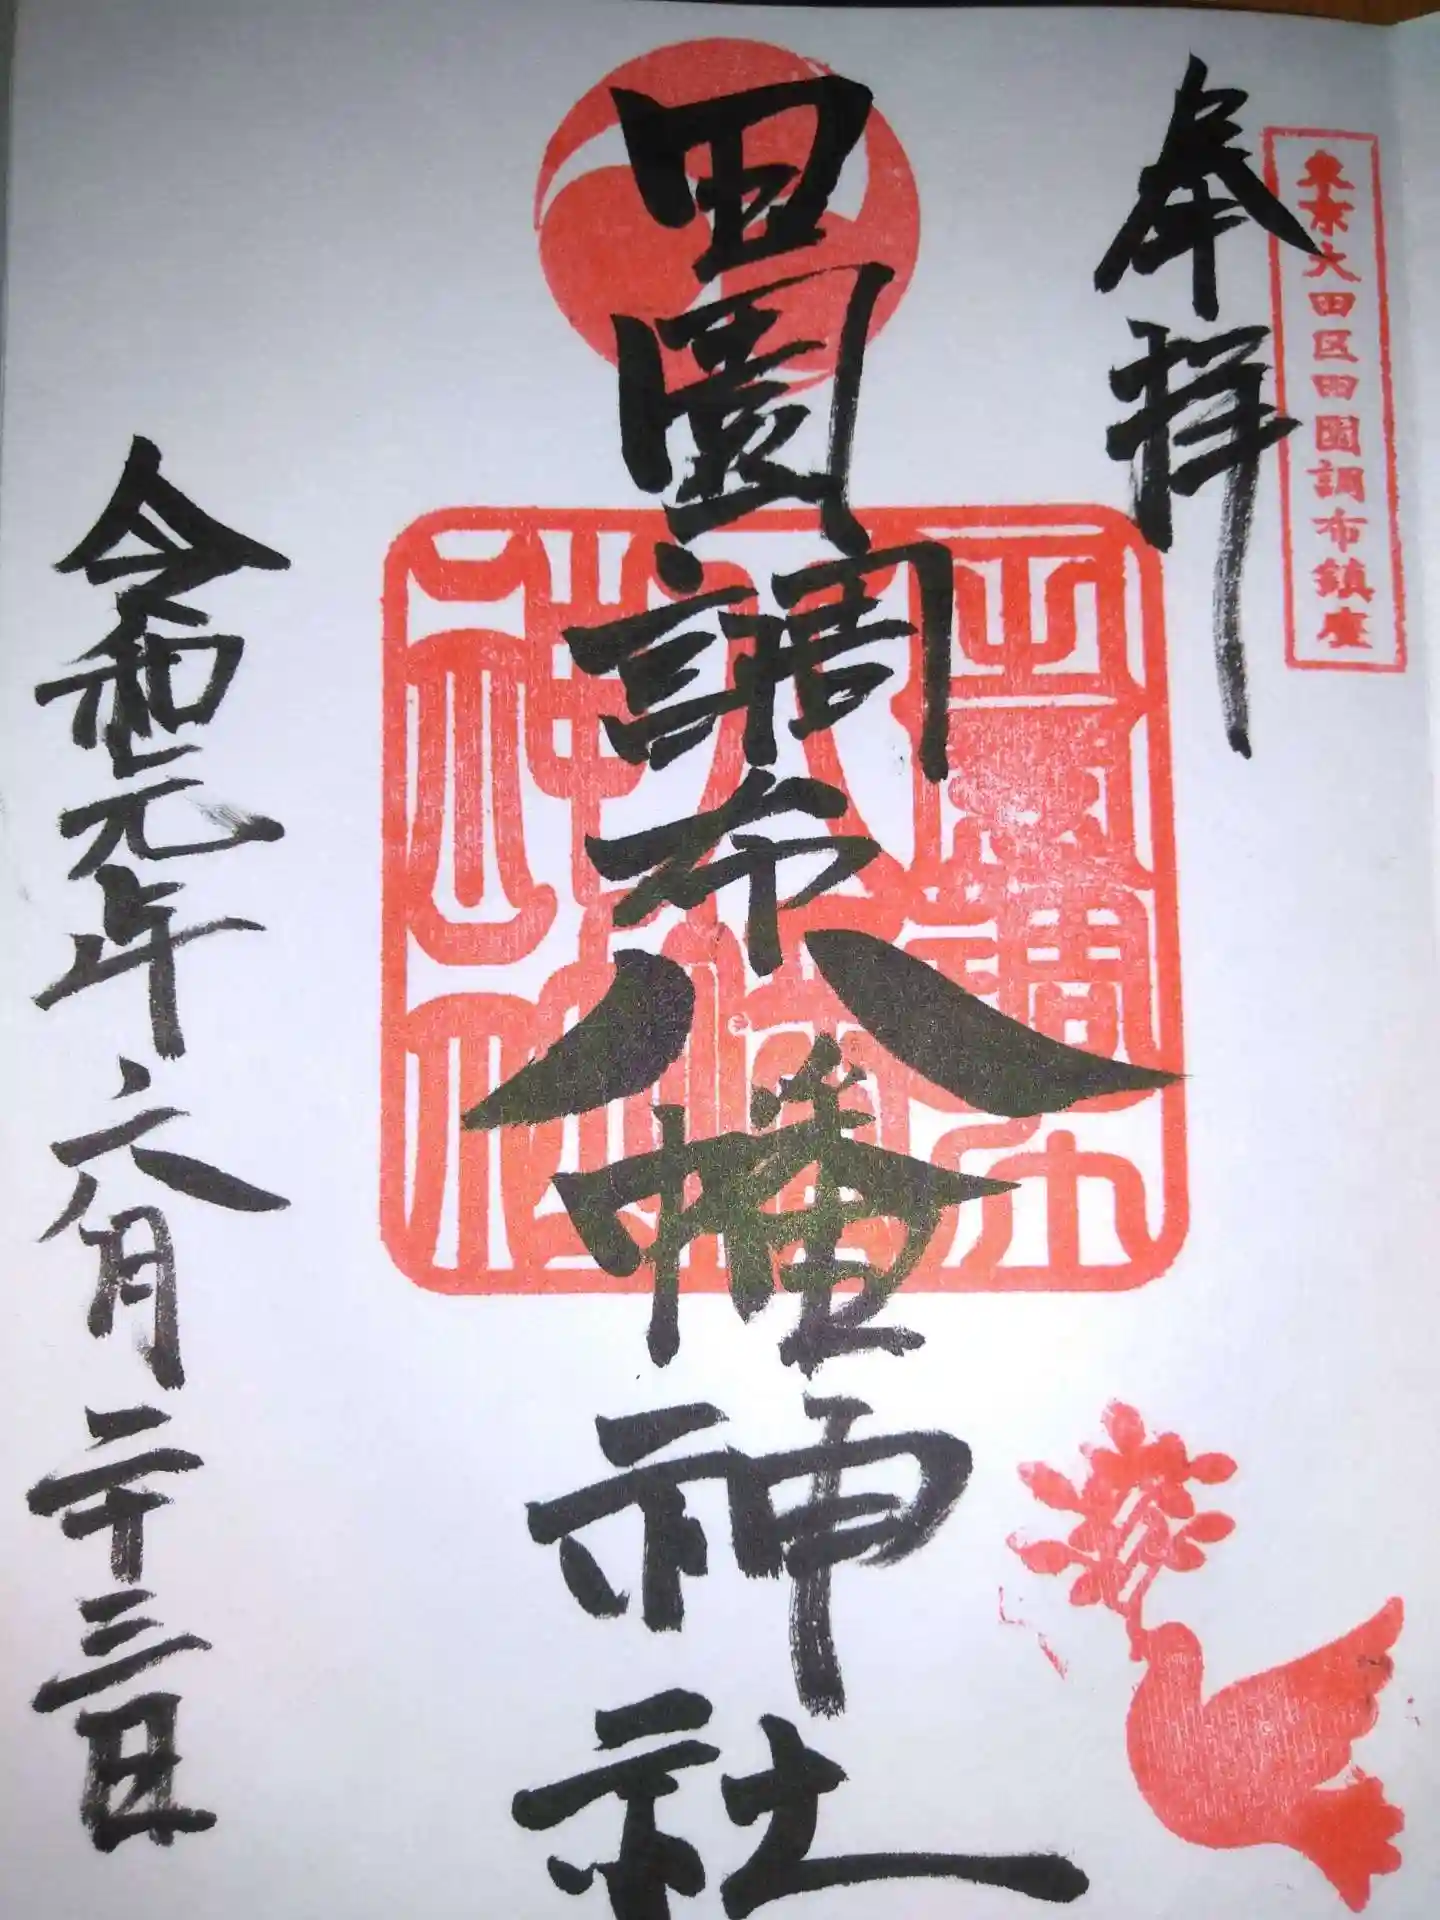 東京大田区田園調布鎮座
奉拝
田園調布八幡神社
田園調布
八幡
神社
令和元年六月二十三日